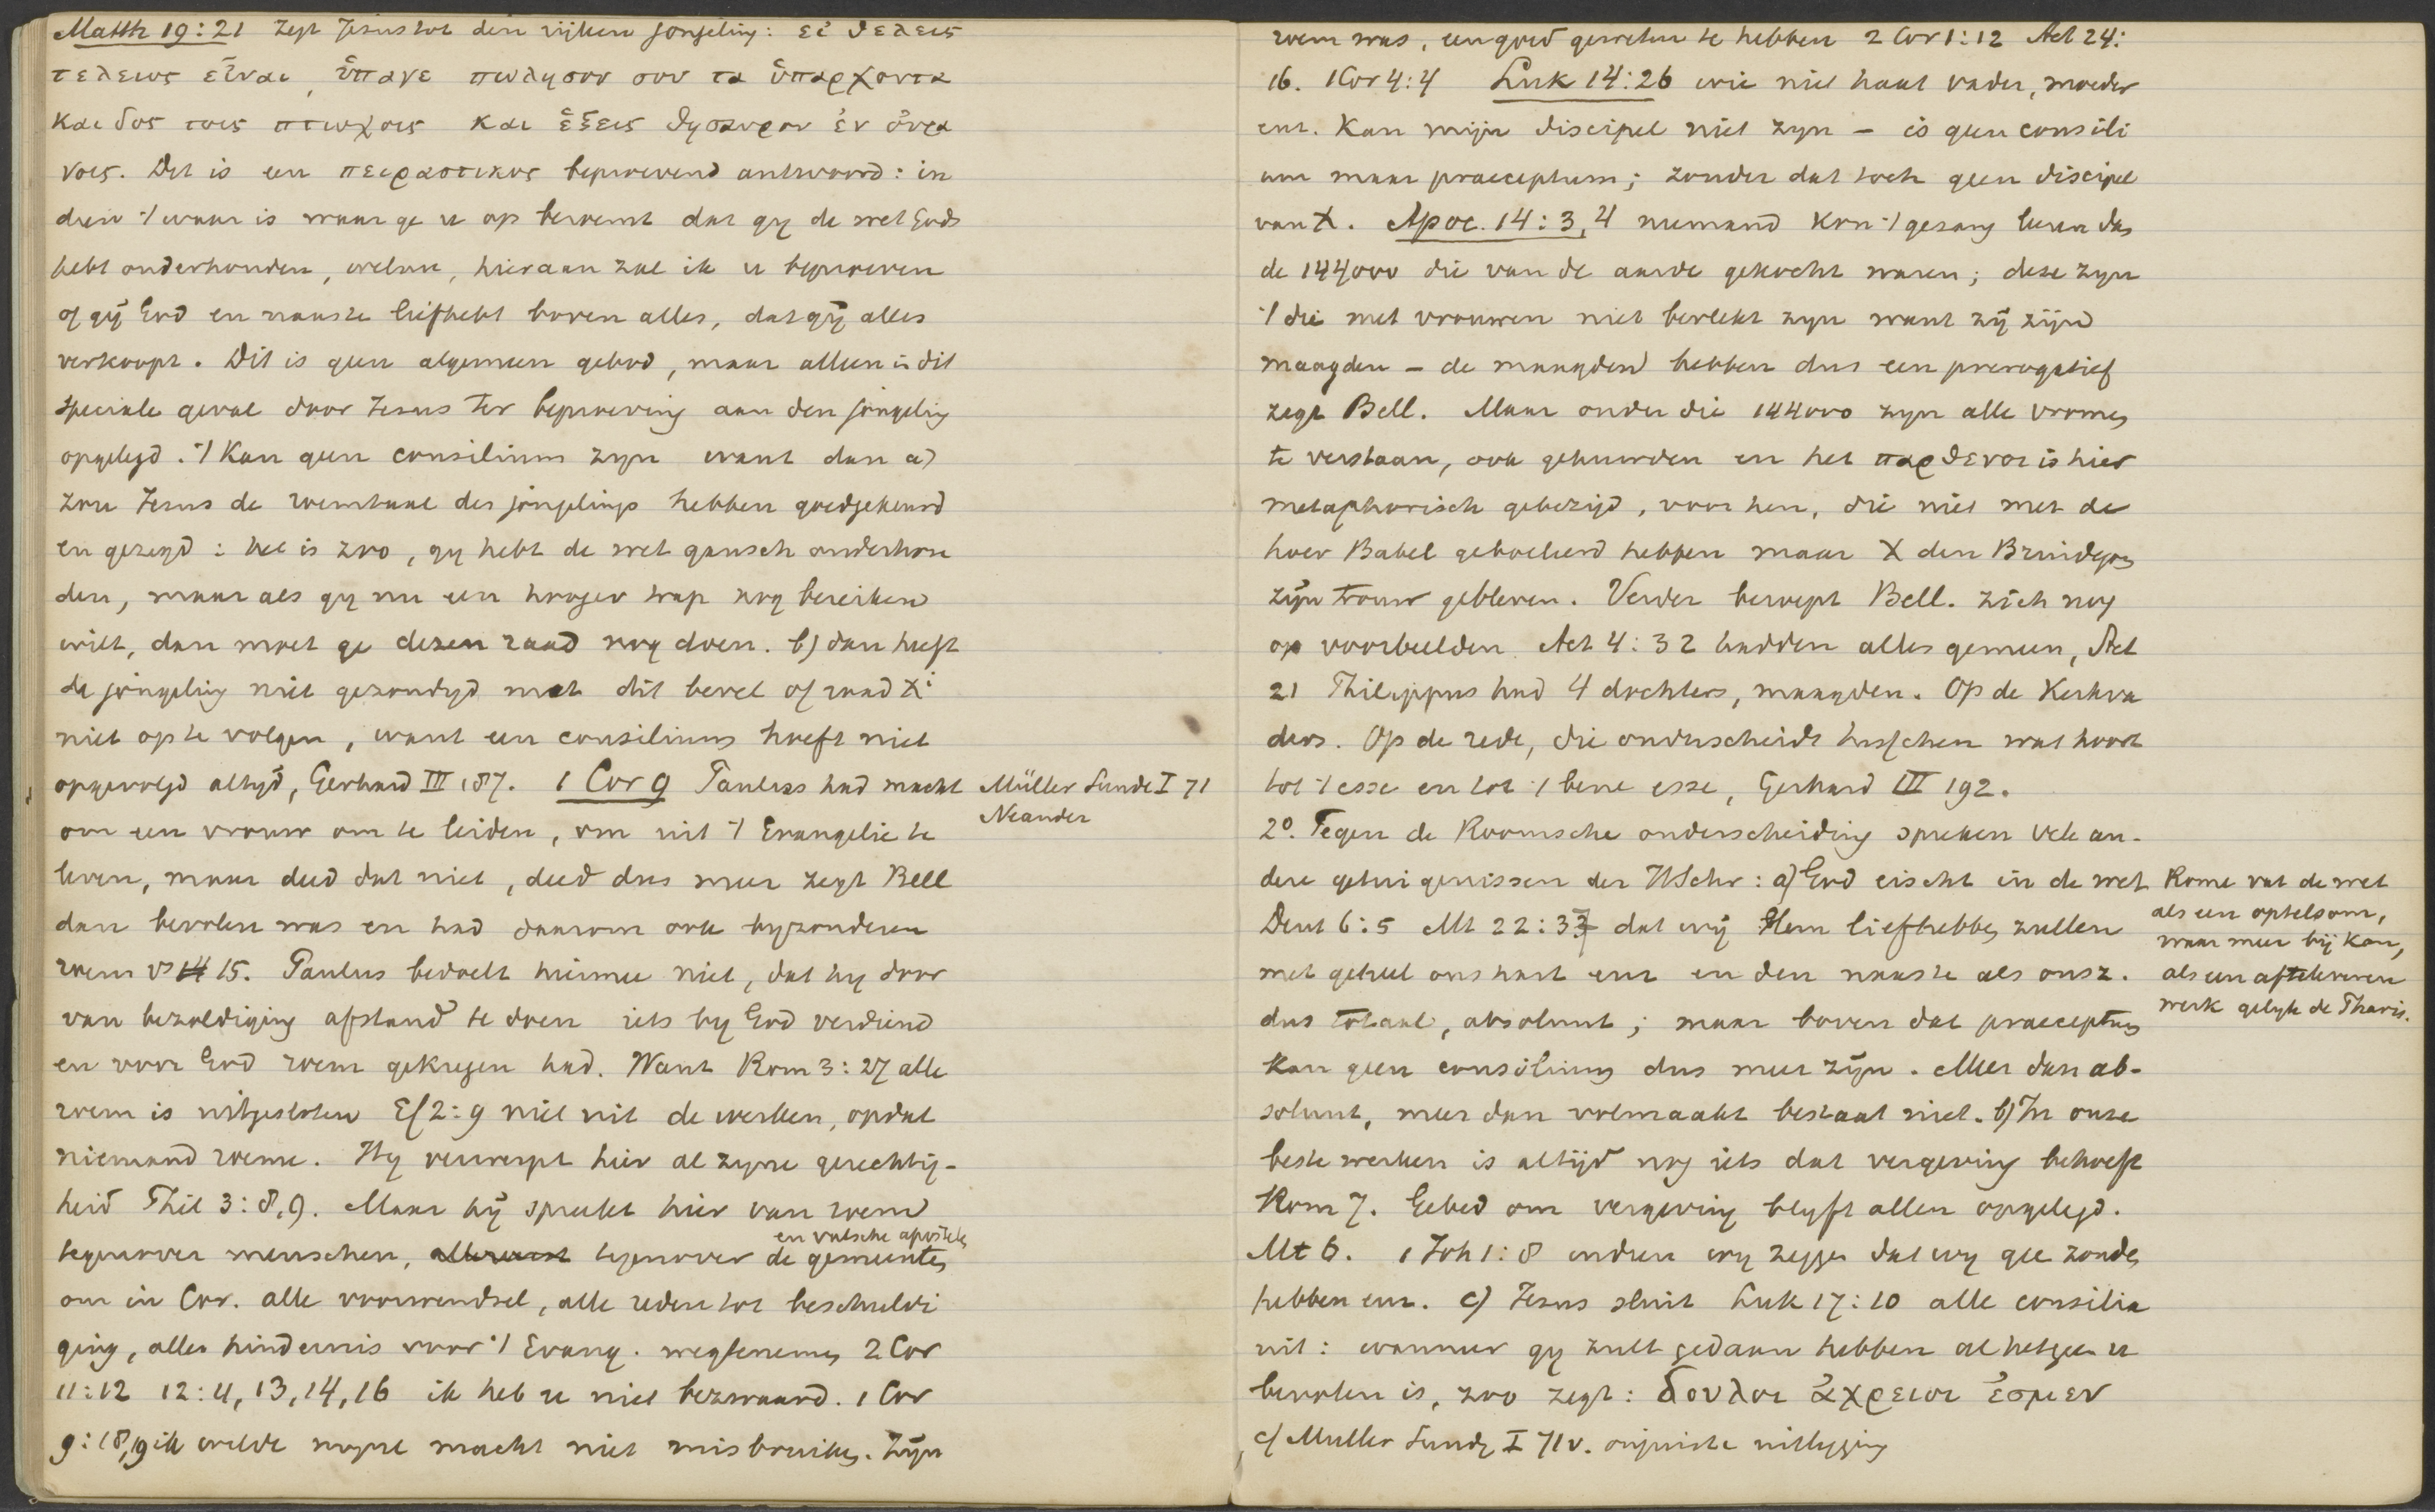 Matth 19:21 zegt Jesus tot den rijken jongeling: εἰ θελεις
τελειος εἶναι, ὕπαγε πωλησον σου τα ὑπαρχοντα
και δος τοις πτωχοις και ἕξεις θησαυρον ἐν οὐρα
νοις. Dit is een πειραστικος beproevend antwoord: in
dien 't waar is waar ge u op beroemt dat gy de wet Gods
hebt onderhouden, welnu, hieraan zal ik u beproeven
of gij God en naaste liefhebt boven alles, dat gij alles
verkoopt. Dit is geen algemeen gebod, maar alleen in dit
speciale geval door Jezus ter beproeving aan den jongeling
opgelegd. 't Kan geen consilium zyn want dan a)
zou Jesus de roemtaal des jongelings hebben goedgekeurd
en gezegd: het is zoo, gy hebt de wet gansch onderhou
den, maar als gy nu een hooger trap nog bereiken
wilt, dan moet ge dezen raad nog doen. b) dan heeft
de jongeling niet gezondigd met dit bevel of raad Xi
niet op te volgen, want een consilium hoeft niet
opgevolgd altyd, Gerhard III 187. 1 Cor 9 Paulus had macht
om een vrouw om te leiden, om uit 't Evangelie te
leven, maar deed dat niet, deed dus meer zegt Bell
dan bevolen was en had daarom ook byzonderen
roem vs 14 15. Paulus bedoelt hiermee niet, dat hy door
van bezoldiging afstand te doen iets by God verdiend
en voor God roem gekregen had. Want Rom 3:27 alle
roem is uitgesloten Ef 2:9 niet uit de werken, opdat
niemand roeme. Hy verwerpt hier al zyne gerechtig-
heid Phil 3:8,9. Maar hij spreekt hier van roem
en valsche apostelen
tegenover menschen, allereerst tegenover de gemeenten
om in Cor. alle voorwendsel, alle reden tot beschuldi
ging, alle hindernis voor 't Evang. wegtenemen 2 Cor
11:12 12:11, 13, 14, 16 ik heb u niet bezwaard. 1 Cor
9:18,19 ik wilde myne macht niet misbruiken. Zijn
Müller Sunde I 71
Neander
roem was, een goed geweten te hebben 2 Cor 1:12 Act 24:
16. 1 Cor 4:4 Luk 14:26 wie niet haat vader, moeder
enz. kan mijn discipel niet zyn – is geen consili
um maar praeceptum; zonder dat toch geen discipel
van X. Apoc. 14:3,4 niemand kon 't gezang leeren dan
de 144000 die van de aarde gekocht waren; deze zyn
't die met vrouwen niet bevlekt zyn want zij zijn
maagden – de maagden hebben dus een prerogatief
zegt Bell. Maar onder die 144000 zyn alle vromen
te verstaan, ook gehuwden en het παρθενοι is hier
metaphorisch gebezigd, voor hen, die niet met de
hoer Babel geboeleerd hebben maar X den Bruidegom
zijn trouw gebleven. Verder beroept Bell. zich nog
op voorbeelden Act 4:32 hadden alles gemeen, Act
21 Philippus had 4 dochters, maagden. Op de Kerkva
ders. Op de rede, die onderscheidt tusschen wat hoort
tot 't esse en tot 't bene esse, Gerhard III 192.
2°. Tegen de Roomsche onderscheiding spreken vele an-
dere getuigenissen der HSchr: a) God eischt in de wet
Deut 6:5 Mt 22:37 dat wij Hem liefhebben zullen
met geheel ons hart enz en den naaste als onsz.
dus totaal, absoluut; maar boven dat praeceptum
kan geen consilium dus meer zijn. Meer dan ab-
soluut, meer dan volmaakt bestaat niet. b) In onze
beste werken is altijd nog iets dat vergeving behoeft
Rom 7. Gebed om vergeving blyft allen opgelegd.
Mt 6. 1 Joh 1:8 indien wy zeggen dat wy gee zonde
hebben enz. c) Jezus sluit Luk 17:10 alle consilia
uit: wanneer gy zult gedaan hebben al hetgeen u
bevolen is, zoo zegt: δουλοι ἀχρειοι ἐσμεν
cf Muller Sunde I 71v. onjuiste uitlegging
Rome vat de wet
als een optelsom,
waar meer bij kan,
als een aftelewerk
werk gelyk de Pharis.